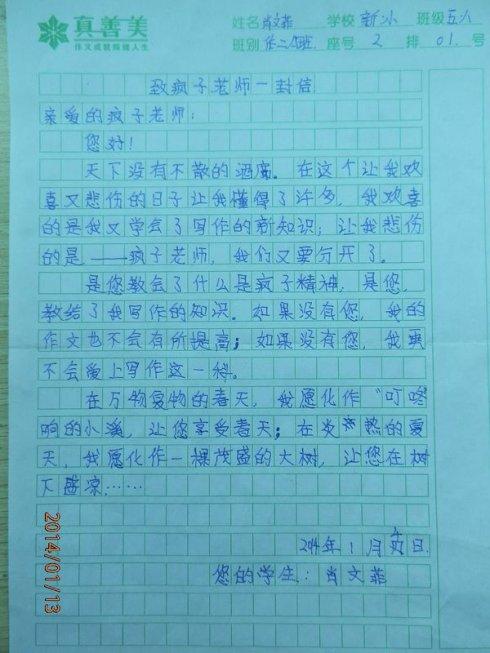 真善美
作文成就辉煌人生
姓名 肖文菲 学校 新小 班级 五六
班别 第二次班. 座号 2 排 01.号
致疯子老师一封信
亲爱的疯子老师：
您好！
天下没有不散的酒席。在这个让我欢
喜又悲伤的日子让我懂得了许多，我欢喜
的是我又学会了写作的新知识；让我悲伤
的是——疯子老师，我们又要分开了。
是您教会了什么是疯子精神，是您，
教给了我写作的知识。如果没有您，我的
作文也不会有所提高；如果没有您，我更
不会爱上写作这一科。
在万物复物的春天，我愿化作“叮咚
响的小溪，让您享受春天；在炎热的夏
天，我愿化作一棵茂盛的大树，让您在树
下盛凉……
2014年1月 日.
您的学生：肖文菲
2014/01/13